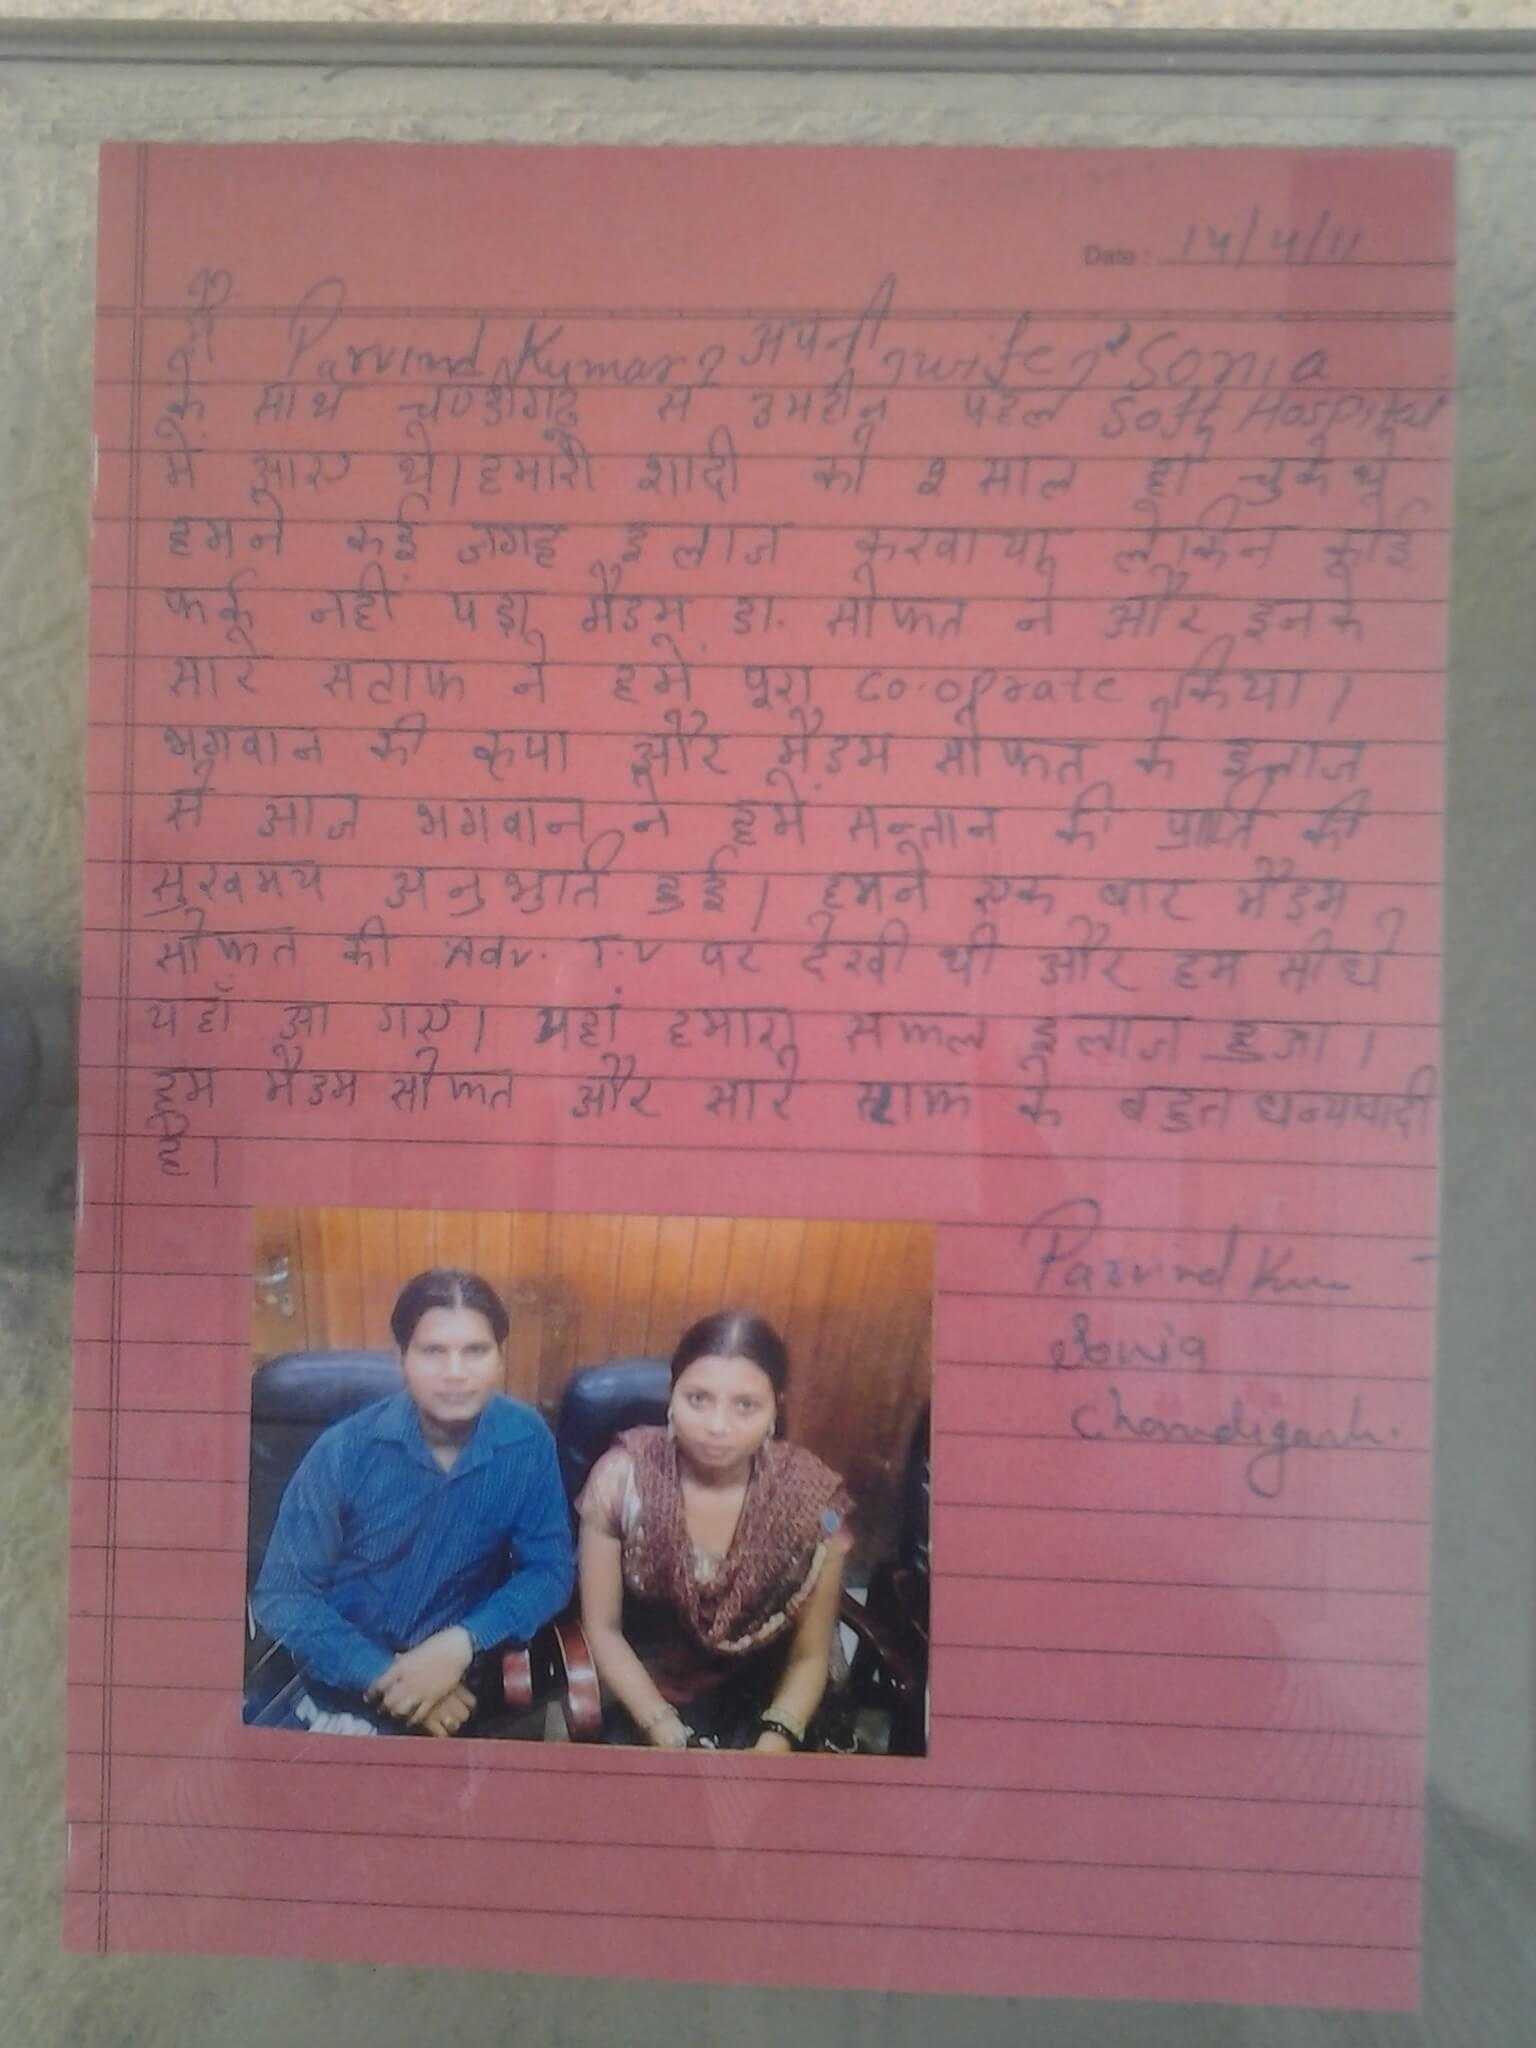 Date : 14/4/11
मैं Parvind Kumar अपनी wife Sonia
के साथ चण्डीगढ़ से उमहीन पहले Soft Hospital
में आए थे। हमारी शादी को 2 साल हो चुके थे
हमने कई जगह इलाज करवाया लेकिन कोई
फर्क नहीं पड़ा मैडम डा. सोफत ने और इनके
सारे सटाफ ने हमें पूरा co.oprate किया।
भगवान की कृपा और मैडम सोफत के इलाज
से आज भगवान ने हमें सन्तान की प्राप्ति की
सुखमय अनुभुति हुई। हमने एक बार मैडम
सोफत की Adv. T.V पर देखी थी और हम सीधे
यहाँ आ गए। यहां हमारा सफल ईलाज हुआ।
हम मैडम सोफत और सारे स्टाफ के बहुत धन्यावादी
है।
Parvind Kum
Sonia
Chandigarh.